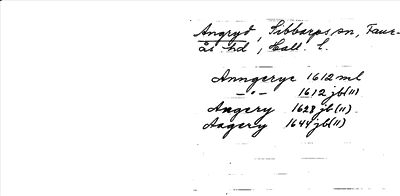 Angryd, Sibbarps sn, Faur-
ås hd, Hall. l.
Anngerye 1612 ml
—"— 1612 jb(11)
Angery 1628 jb(11)
Aagery 1644 jb(11)